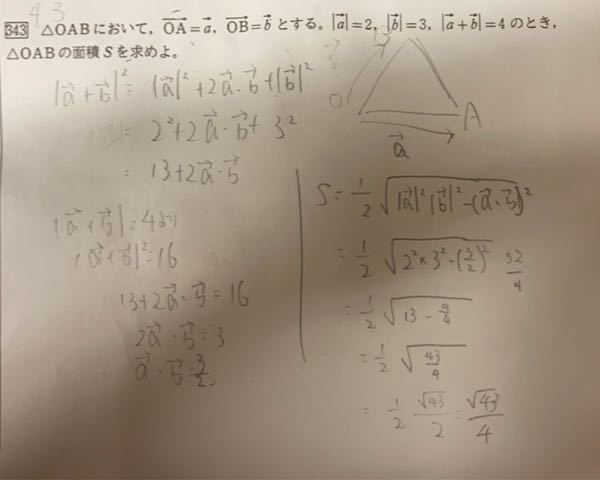 43
343 △OABにおいて，$\overrightarrow{OA}=\vec{a}$，$\overrightarrow{OB}=\vec{b}$ とする。$|\vec{a}|=2$，$|\vec{b}|=3$，$|\vec{a}+\vec{b}|=4$ のとき，
△OABの面積 S を求めよ。
$|\vec{a}+\vec{b}|^2=|\vec{a}|^2+2\vec{a}\cdot\vec{b}+|\vec{b}|^2$
$=2^2+2\vec{a}\cdot\vec{b}+3^2$
$=13+2\vec{a}\cdot\vec{b}$
$|\vec{a}+\vec{b}|=4$より
$|\vec{a}+\vec{b}|^2=16$
$13+2\vec{a}\cdot\vec{b}=16$
$2\vec{a}\cdot\vec{b}=3$
$\vec{a}\cdot\vec{b}=\frac{3}{2}$
O
A
$\vec{a}$
$S=\frac{1}{2}\sqrt{|\vec{a}|^2|\vec{b}|^2-(\vec{a}\cdot\vec{b})^2}$
$=\frac{1}{2}\sqrt{2^2\times3^2-(\frac{3}{2})^2}$ $\frac{52}{4}$
$=\frac{1}{2}\sqrt{13-\frac{9}{4}}$
$=\frac{1}{2}\sqrt{\frac{43}{4}}$
$=\frac{1}{2}\frac{\sqrt{43}}{2}=\frac{\sqrt{43}}{4}$